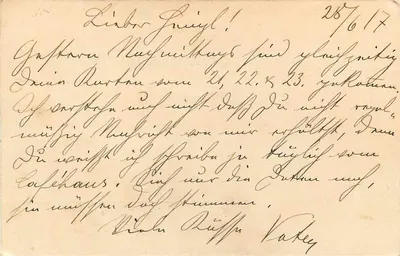 Lieber Heinzl! 28/6 17
Gestern Nachmittags sind gleichzeitig
Deine Karten vom 21, 22 & 23. gekommen.
Ich verstehe auch nicht daß Du nicht regel-
mäßig Nachricht von mir erhältst, denn
Du weißt ich schreibe ja täglich vom
Caféhaus. Sieh nur die Daten nach,
sie müssen doch stimmen.
Viele Küsse Vater